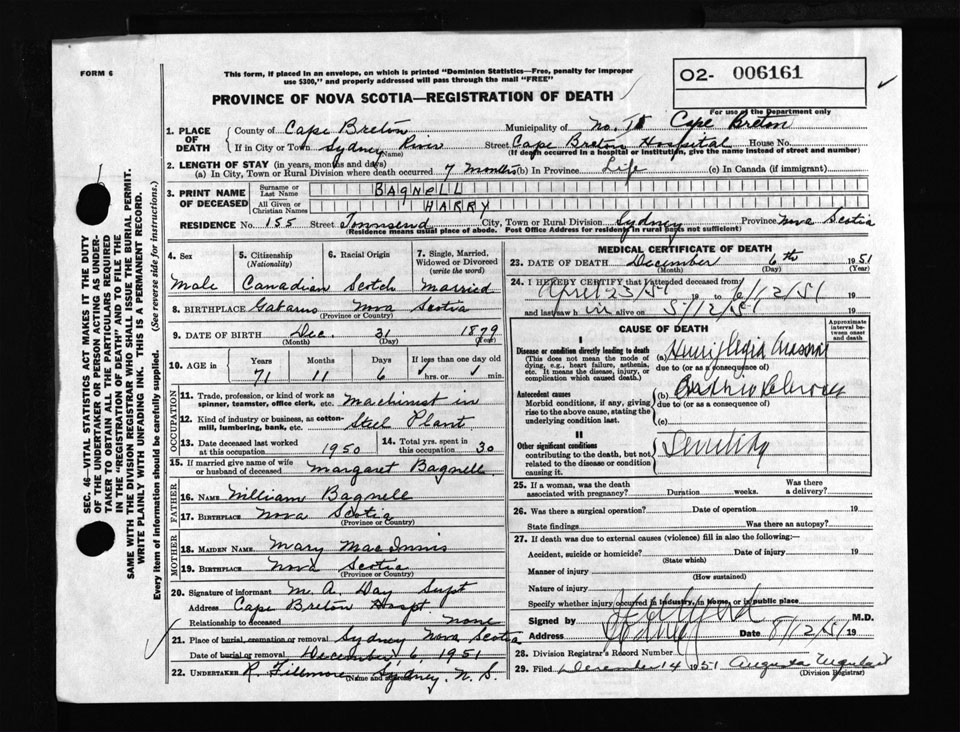 FORM 6
This form, if placed in an envelope, on which is printed "Dominion Statistics—Free, penalty for improper
use $300," and properly addressed will pass through the mail "FREE"
O2- 006161
PROVINCE OF NOVA SCOTIA—REGISTRATION OF DEATH
For use of the Department only
1. PLACE OF DEATH
County of Cape Breton Municipality of No. Cape Breton
If in City or Town Sydney River (Name) Street Cape Breton Hospital House No.
(If death occurred in a hospital or institution, give the name instead of street and number)
2. LENGTH OF STAY (in years, months and days)
(a) In City, Town or Rural Division where death occurred 7 months (b) In Province Life (c) In Canada (if immigrant)
3. PRINT NAME OF DECEASED
Surname or Last Name BAGNELL
All Given or Christian Names HARRY
RESIDENCE No. 155 Street Townsend City, Town or Rural Division Sydney Province Nova Scotia
(Residence means usual place of abode. Post Office Address for residents in rural parts not sufficient)
4. Sex
Male
5. Citizenship (Nationality)
Canadian
6. Racial Origin
Scotch
7. Single, Married, Widowed or Divorced (write the word)
Married
8. BIRTHPLACE Gabarus Nova Scotia
(Province or Country)
9. DATE OF BIRTH Dec 31 1879
(Month) (Day) (Year)
10. AGE in
Years Months Days If less than one day old
71 11 6 hrs. or min.
OCCUPATION
11. Trade, profession, or kind of work as
spinner, teamster, office clerk, etc. Machinist in
12. Kind of industry or business, as cotton-
mill, lumbering, bank, etc. Steel Plant
13. Date deceased last worked at this occupation 1950
14. Total yrs. spent in this occupation 30
15. If married give name of wife or husband of deceased Margaret Bagnell
FATHER
16. NAME William Bagnell
17. BIRTHPLACE Nova Scotia
(Province or Country)
MOTHER
18. MAIDEN NAME Mary MacInnis
19. BIRTHPLACE Nova Scotia
(Province or Country)
20. Signature of informant M. A. Day Supt
Address Cape Breton Hospt
Relationship to deceased none
21. Place of burial, cremation or removal Sydney Nova Scotia
Date of burial or removal December 6, 1951
22. UNDERTAKER R. Fillmore, Sydney, N. S.
(Name and address)
MEDICAL CERTIFICATE OF DEATH
23. DATE OF DEATH December 6th 1951
(Month) (Day) (Year)
24. I HEREBY CERTIFY that I attended deceased from:
April 23/51 19 to 6/12/51 19
and last saw h im alive on 5/12/51 19
CAUSE OF DEATH
Approximate interval between onset and death
I
Disease or condition directly leading to death
(This does not mean the mode of
dying, e.g., heart failure, asthenia,
etc. It means the disease, injury, or
complication which caused death.)
(a) Hemiplegia
due to (or as a consequence of)
Antecedent causes
Morbid conditions, if any, giving
rise to the above cause, stating the
underlying condition last.
(b)
due to (or as a consequence of)
(c)
II
Other significant conditions
contributing to the death, but not
related to the disease or condition
causing it.
Senility
25. If a woman, was the death associated with pregnancy? Duration weeks. Was there a delivery?
26. Was there a surgical operation? Date of operation 19
State findings Was there an autopsy?
27. If death was due to external causes (violence) fill in also the following:—
Accident, suicide or homicide? Date of injury 19
(State which)
Manner of injury
(How sustained)
Nature of injury
Specify whether injury occurred in industry, in home, or in public place
Signed by M.D.
Address Sydney Date 8/12/51 19
28. Division Registrar's Record Number
29. Filed December 14 1951 Augusta
(Division Registrar)
SEC. 46—VITAL STATISTICS ACT MAKES IT THE DUTY
OF THE UNDERTAKER OR PERSON ACTING AS UNDER-
TAKER TO OBTAIN ALL THE PARTICULARS REQUIRED
IN THE "REGISTRATION OF DEATH" AND TO FILE THE
SAME WITH THE DIVISION REGISTRAR WHO SHALL ISSUE THE BURIAL PERMIT.
WRITE PLAINLY WITH UNFADING INK. THIS IS A PERMANENT RECORD.
Every item of information should be carefully supplied. (See reverse side for instructions.)